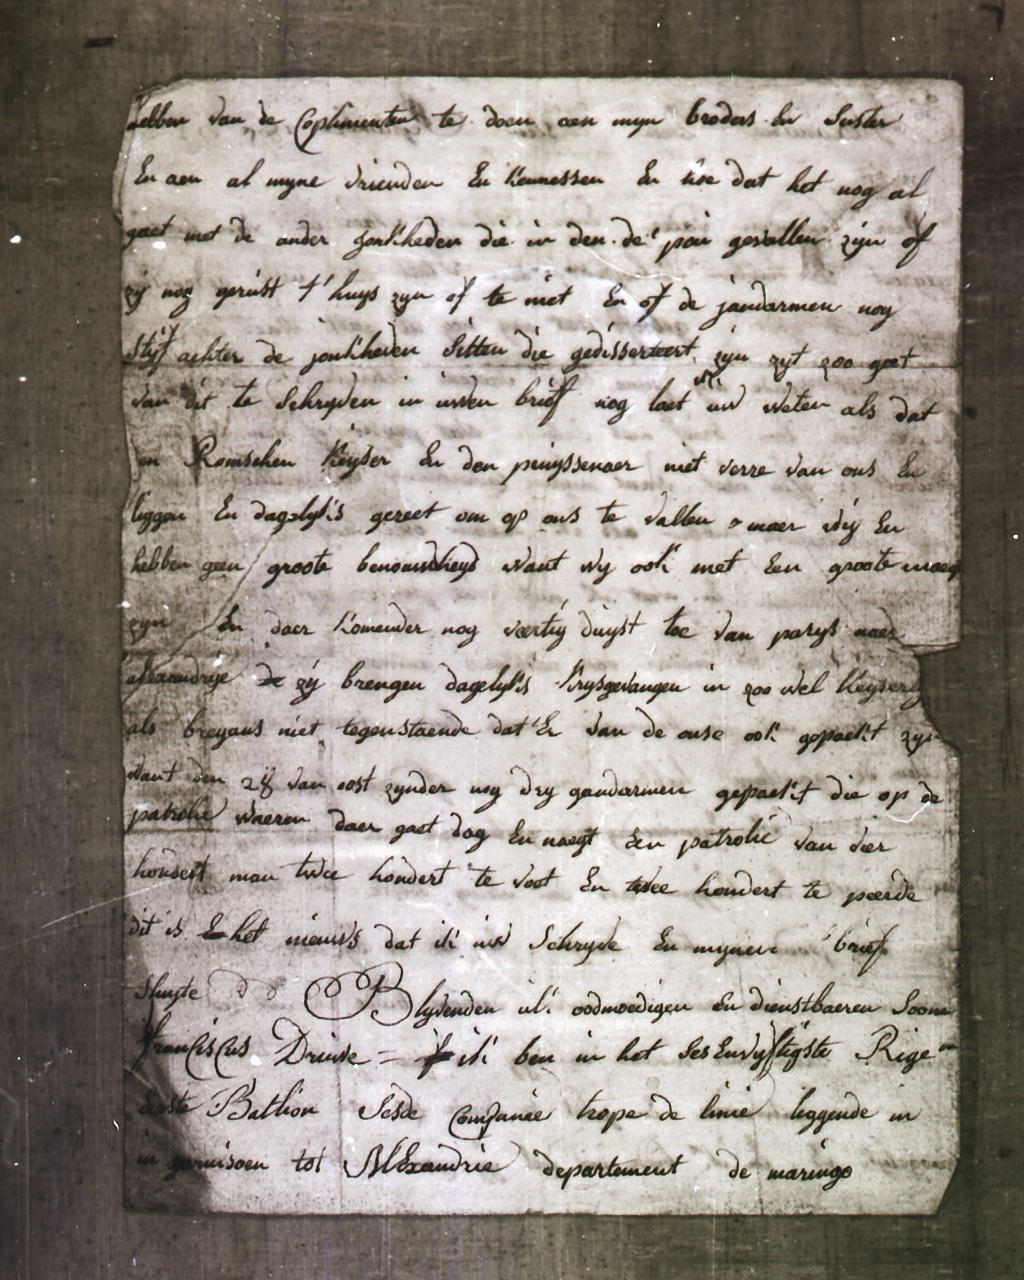 hebben van de Coplimenten te doen aen myn broders En suster
En aen al myne vrienden En kennessen En hoe dat het nog al
gaet met de ander Jonkheden die in den de'poi gevallen zijn of
zij nog gerust t'huys zyn of te niet En of de jandarmen nog
Stijf achter de jonkheden Sitten die gedisserteert zyn zyt zoo goet
van dit te Schryven in uwen brief nog laet ik uw weten als dat
en Romschen Keyser En den pruyssenaer niet verre van ons En
liggen En dagelykis gereet om op ons te vallen maer wij En
hebben geen groote benouwdheyd want wy ook met Een groote maeg
zyn En daer komender nog veertig duyst toe van parys naer
alexandrije zij brengen dagelykis krysgevangen in zoo wel Keysers
als breyans niet tegenstaende dat'Er van de onse ook gepackt zyn
want den 28 van ost zynder nog dry gandarmen gepackt die op de
patrolie waeren daer gaet dag En nacgt Een patrolie van vier
hondert man twee hondert te voet En twee hondert te peerde
dit is het nieuws dat ik uw Schryve En mynen brief
sluyte Blyvenden ul: oodmoedigen En dienstbaeren Soone
franCisCus Druwe = ik ben in het sesEnvyftigste Rige
Eerste Batlion Sesde Companie trope de linie liggende in
in garnisoen tot AlExandrie departement de maringo